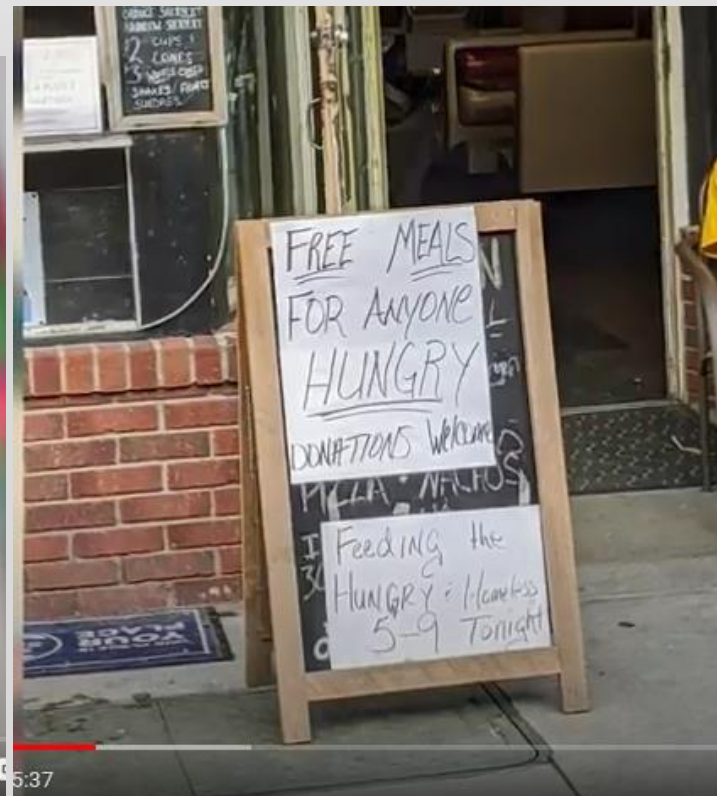 ORANGE SHERBERT
RAINBOW SHERBERT
2 CUPS &
CONES
SHAKES
SUNDAES
FREE MEALS
FOR ANYONE
HUNGRY
DONATIONS Welcome
PIZZA • NACHOS
Feeding the
HUNGRY & Homeless
5-9 Tonight
YOUR
PLACE
5:37